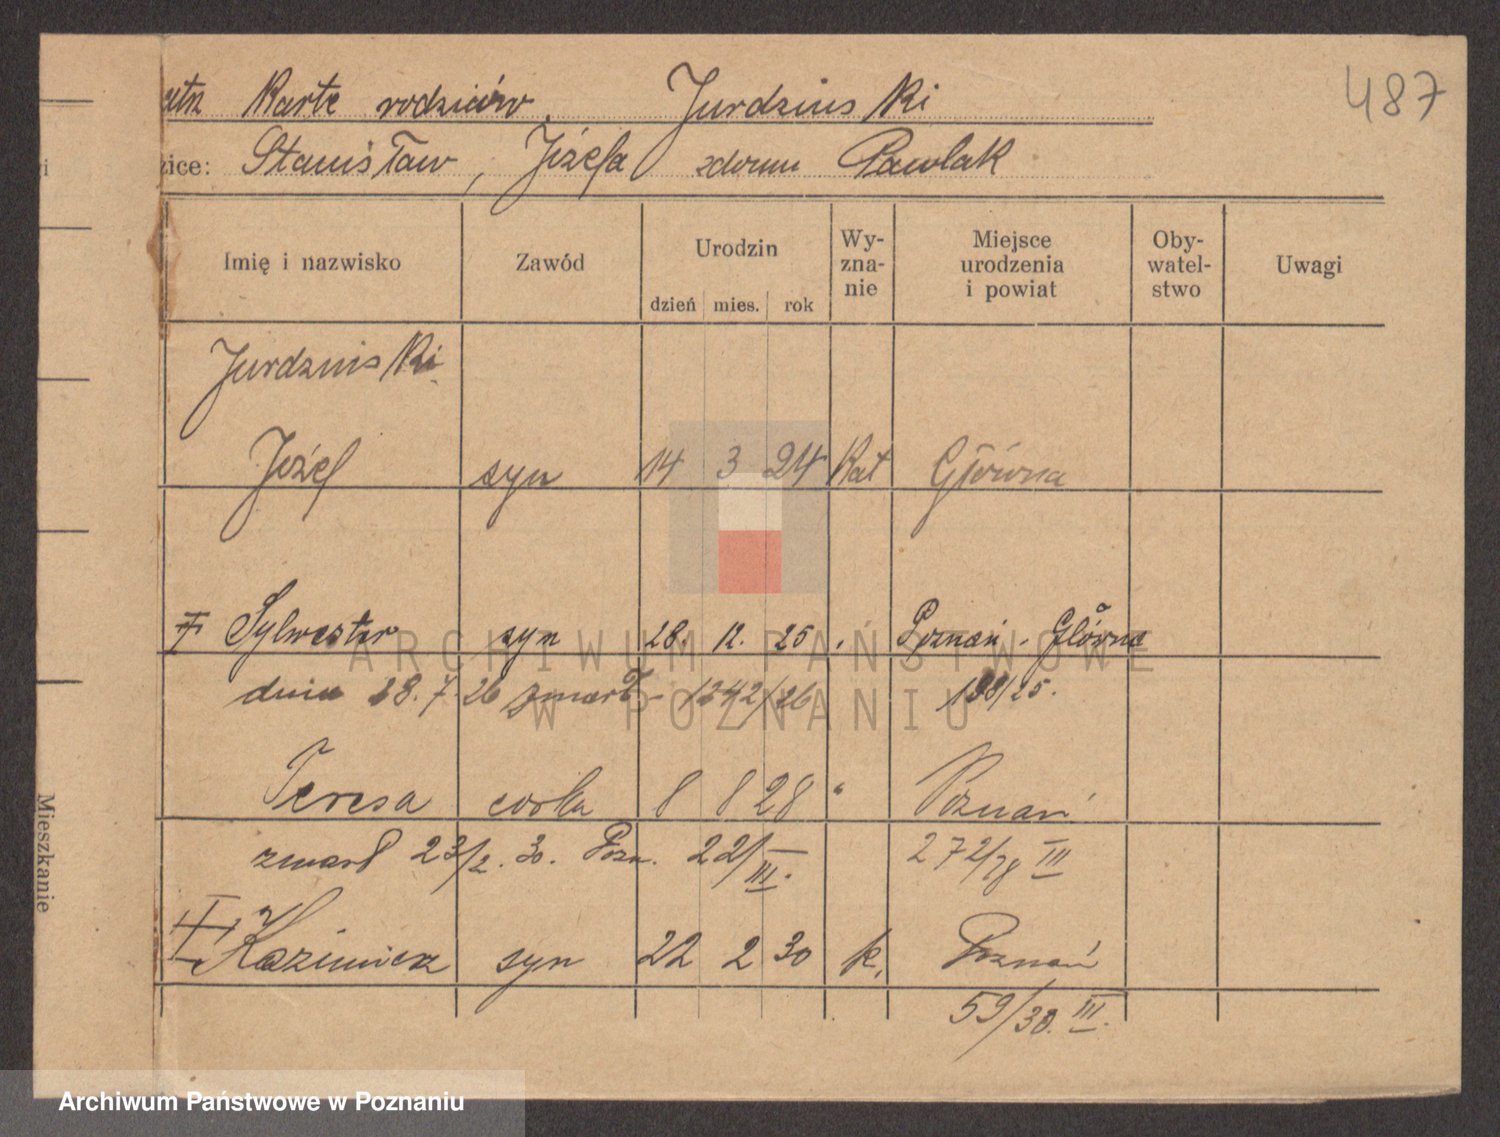 487
Karte rodziców. Jurdziński
zice: Stanisław, Józefa zdomu Pawlak
Imię i nazwisko
Zawód
Urodzin
dzień mies. rok
Wy-
zna-
nie
Miejsce
urodzenia
i powiat
Oby-
watel-
stwo
Uwagi
Jurdziński
Józef syn 14 3 24 Kat Główna
Sylwester syn 28. 12. 25 Poznań - Główna
dnia 28. 7. 26 zmarł - 1342/26 198/25.
Teresa córka 8 8 28 " Poznań
zmarł 23/2. 30. Pozn. 221/III. 272/28 III
Kazimierz syn 22 2 30 k. Poznań
59/30. III.
Mieszkanie
ARCHIWUM PAŃSTWOWE
W POZNANIU
Archiwum Państwowe w Poznaniu